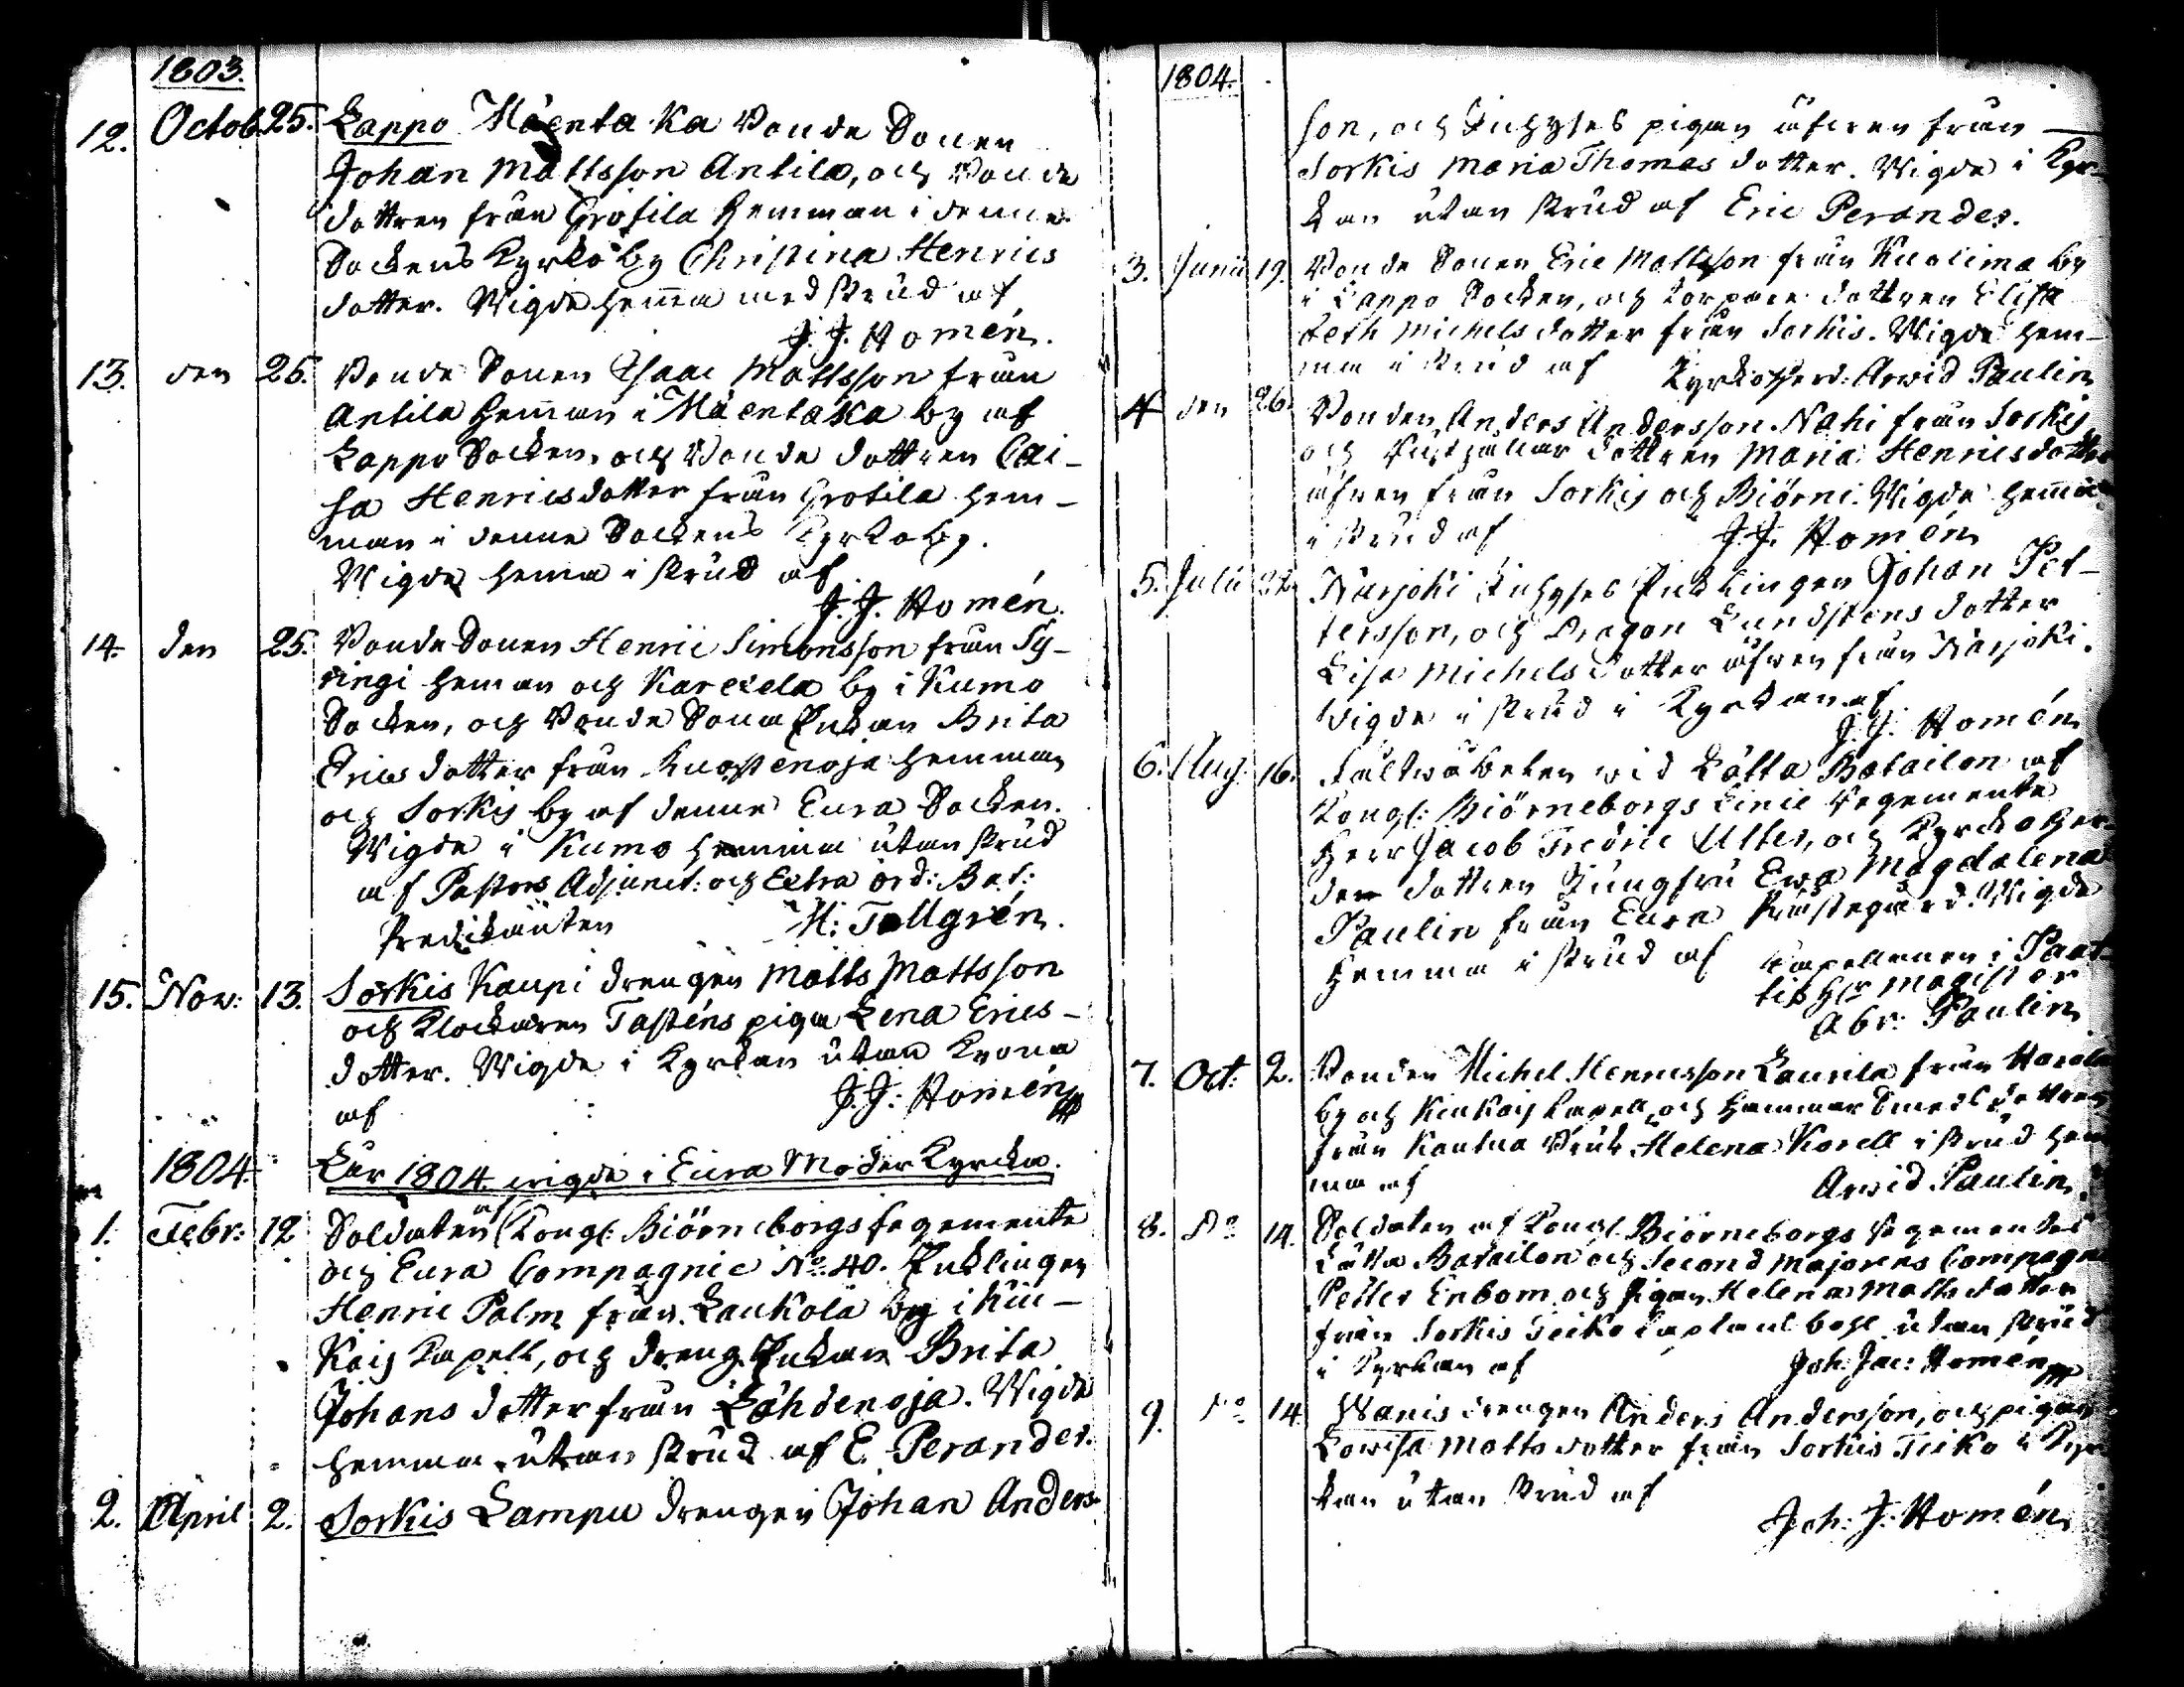 1803.
12. Octob. 25. Lappo Mäentaka Bonde Sonen
Johan Mattsson Antila, och Bonde
dottren från Grotila Hemman i denne
Sockens Kyrkoby Christina Henrics
dotter. Wigde hemma med skrud af
J. J. Homén.
13. den 25. Bonde Sonen Isaac Mattsson från
Antila Hemman i Mäentaka by af
Lappo Socken, och Bonde dottren Cai-
sa Henricsdotter från Grotila hem-
man i denne Sockens Kyrkoby.
Wigde hema i skrud af
J. J. Homén.
14. den 25. Bonde Sonen Henric Simonsson från Sy-
ringi heman och Karckela by i Kumo
Socken, och Bonde Sona Enkan Brita
Erics dotter från Kuostenoja hemman
och Sorkis by af denne Eura Socken.
Wigde i Kumo hemma utan skrud
af Pastors Adjunct: och Extra ord: Bat:
Predikanten H: Tallgrén.
15. Nov: 13. Sorkis Kaupi drengen Matts Mattsson
och Klockaren Tasténs piga Lena Erics-
dotter. Wigde i Kyrkan utan Krona
af J. J: Homén
1804. Åhr 1804 wigde i Eura Moder Kyrcka.
1. Febr: 12 Soldaten af Kongl: Biörneborgs Regemente
och Eura Compagnie No: 40. Enklingen
Henric Palm från Laukola by i Kiu-
Kais Kapell, och dreng Enkan Brita
Johans dotter från Lähdenoja. Wigde
hemma utan skrud af E. Perander.
2. April 2. Sorkis Lampu drengen Johan Anders-
1804.
son, och Inhyses pigan äfwen från
Sorkis Maria Thomas dotter. Wigde i Kyr-
kan utan skrud af Eric Perander.
3. Junii 19. Bonde Sonen Eric Mattsson från Kuolima by
i Lappo Socken, och torpare dottren Elisa
beth Michelsdotter från Sorkis. Wigde hem-
ma i skrud af Kyrkoherd: Arwid Paulin
4 den 26. Bonden Anders Andersson Nahi från Sorkis
och dottren Maria Henricsdotter
äfwen från Sorkis och Biörni. Wigde hemma
i skrud af J. J. Homén
5. Julii Narjoki Inhyses Enklingen Johan Pet-
tersson, och Dragon Lundstens dotter
Lisa Michels dotter äfwen från Narjoki.
Wigde i skrud i Kyrkan af
J. J. Homén
6. Aug: 16. Fältwäbelen wid Lätta Batailon af
Kongl: Biörneborgs Linie Regemente
Herr Jacob Fredric Utter, och Kyrckoher-
den dottren Jungfru Ewa Magdalena
Paulin från Eura Prästegård. Wigde
hemma i skrud af Capellanen i Paat-
tis Hr Magister
Abr: Paulin
7. Oct: 2. Bonden Michel Henricsson Laurila från Harola
by och Kiukais Kapell, och Hammar Smeds dottren
från Kautua Bruk Helena Korell i skrud hem
ma af Arvid Paulin
8. Do 14. Soldaten af Kongl. Biörneborgs Regementes
Lätta Batailon och Second Majorens Compagnie
Petter Enbom och Pigan Helena Matts dotter
från Sorkis Teiko Caplans bohl utan skrud
i Kyrkan af Joh: Jac: Homén
9. Do 14 Wanis drengen Anders Andersson, och pigan
Lowisa Matts dotter från Sorkis Teiko i Kyr
kan utan skrud af
Joh: J: Homén